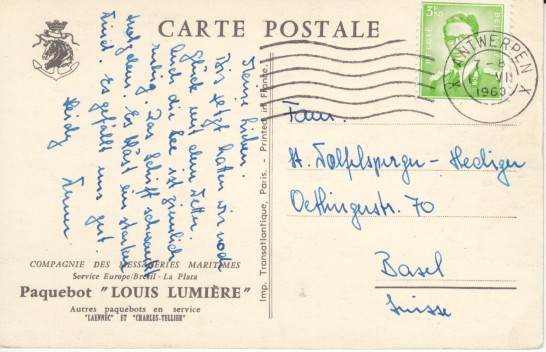 CARTE POSTALE
Meine Lieben!
Bis jetzt hatten wir
Glück mit dem Wetter.
Und die See ist ziemlich
ruhig. Das Schiff schwankt
trotzdem. Es bläst ein starker
Wind. Es gefällt uns gut.
Heidy
COMPAGNIE DES MESSAGERIES MARITIMES
Service Europe/Brésil - La Plata
Paquebot "LOUIS LUMIÈRE"
Autres paquebots en service
"LAENNEC" ET "CHARLES-TELLIER"
Imp. Transatlantique, Paris. - Printed in France.
3F50
BELGIE
BELGIQUE
ANTWERPEN X
7-8
VII
1963
X
Fam.
Hediger
Oethlingerstr. 70
Basel
Suisse